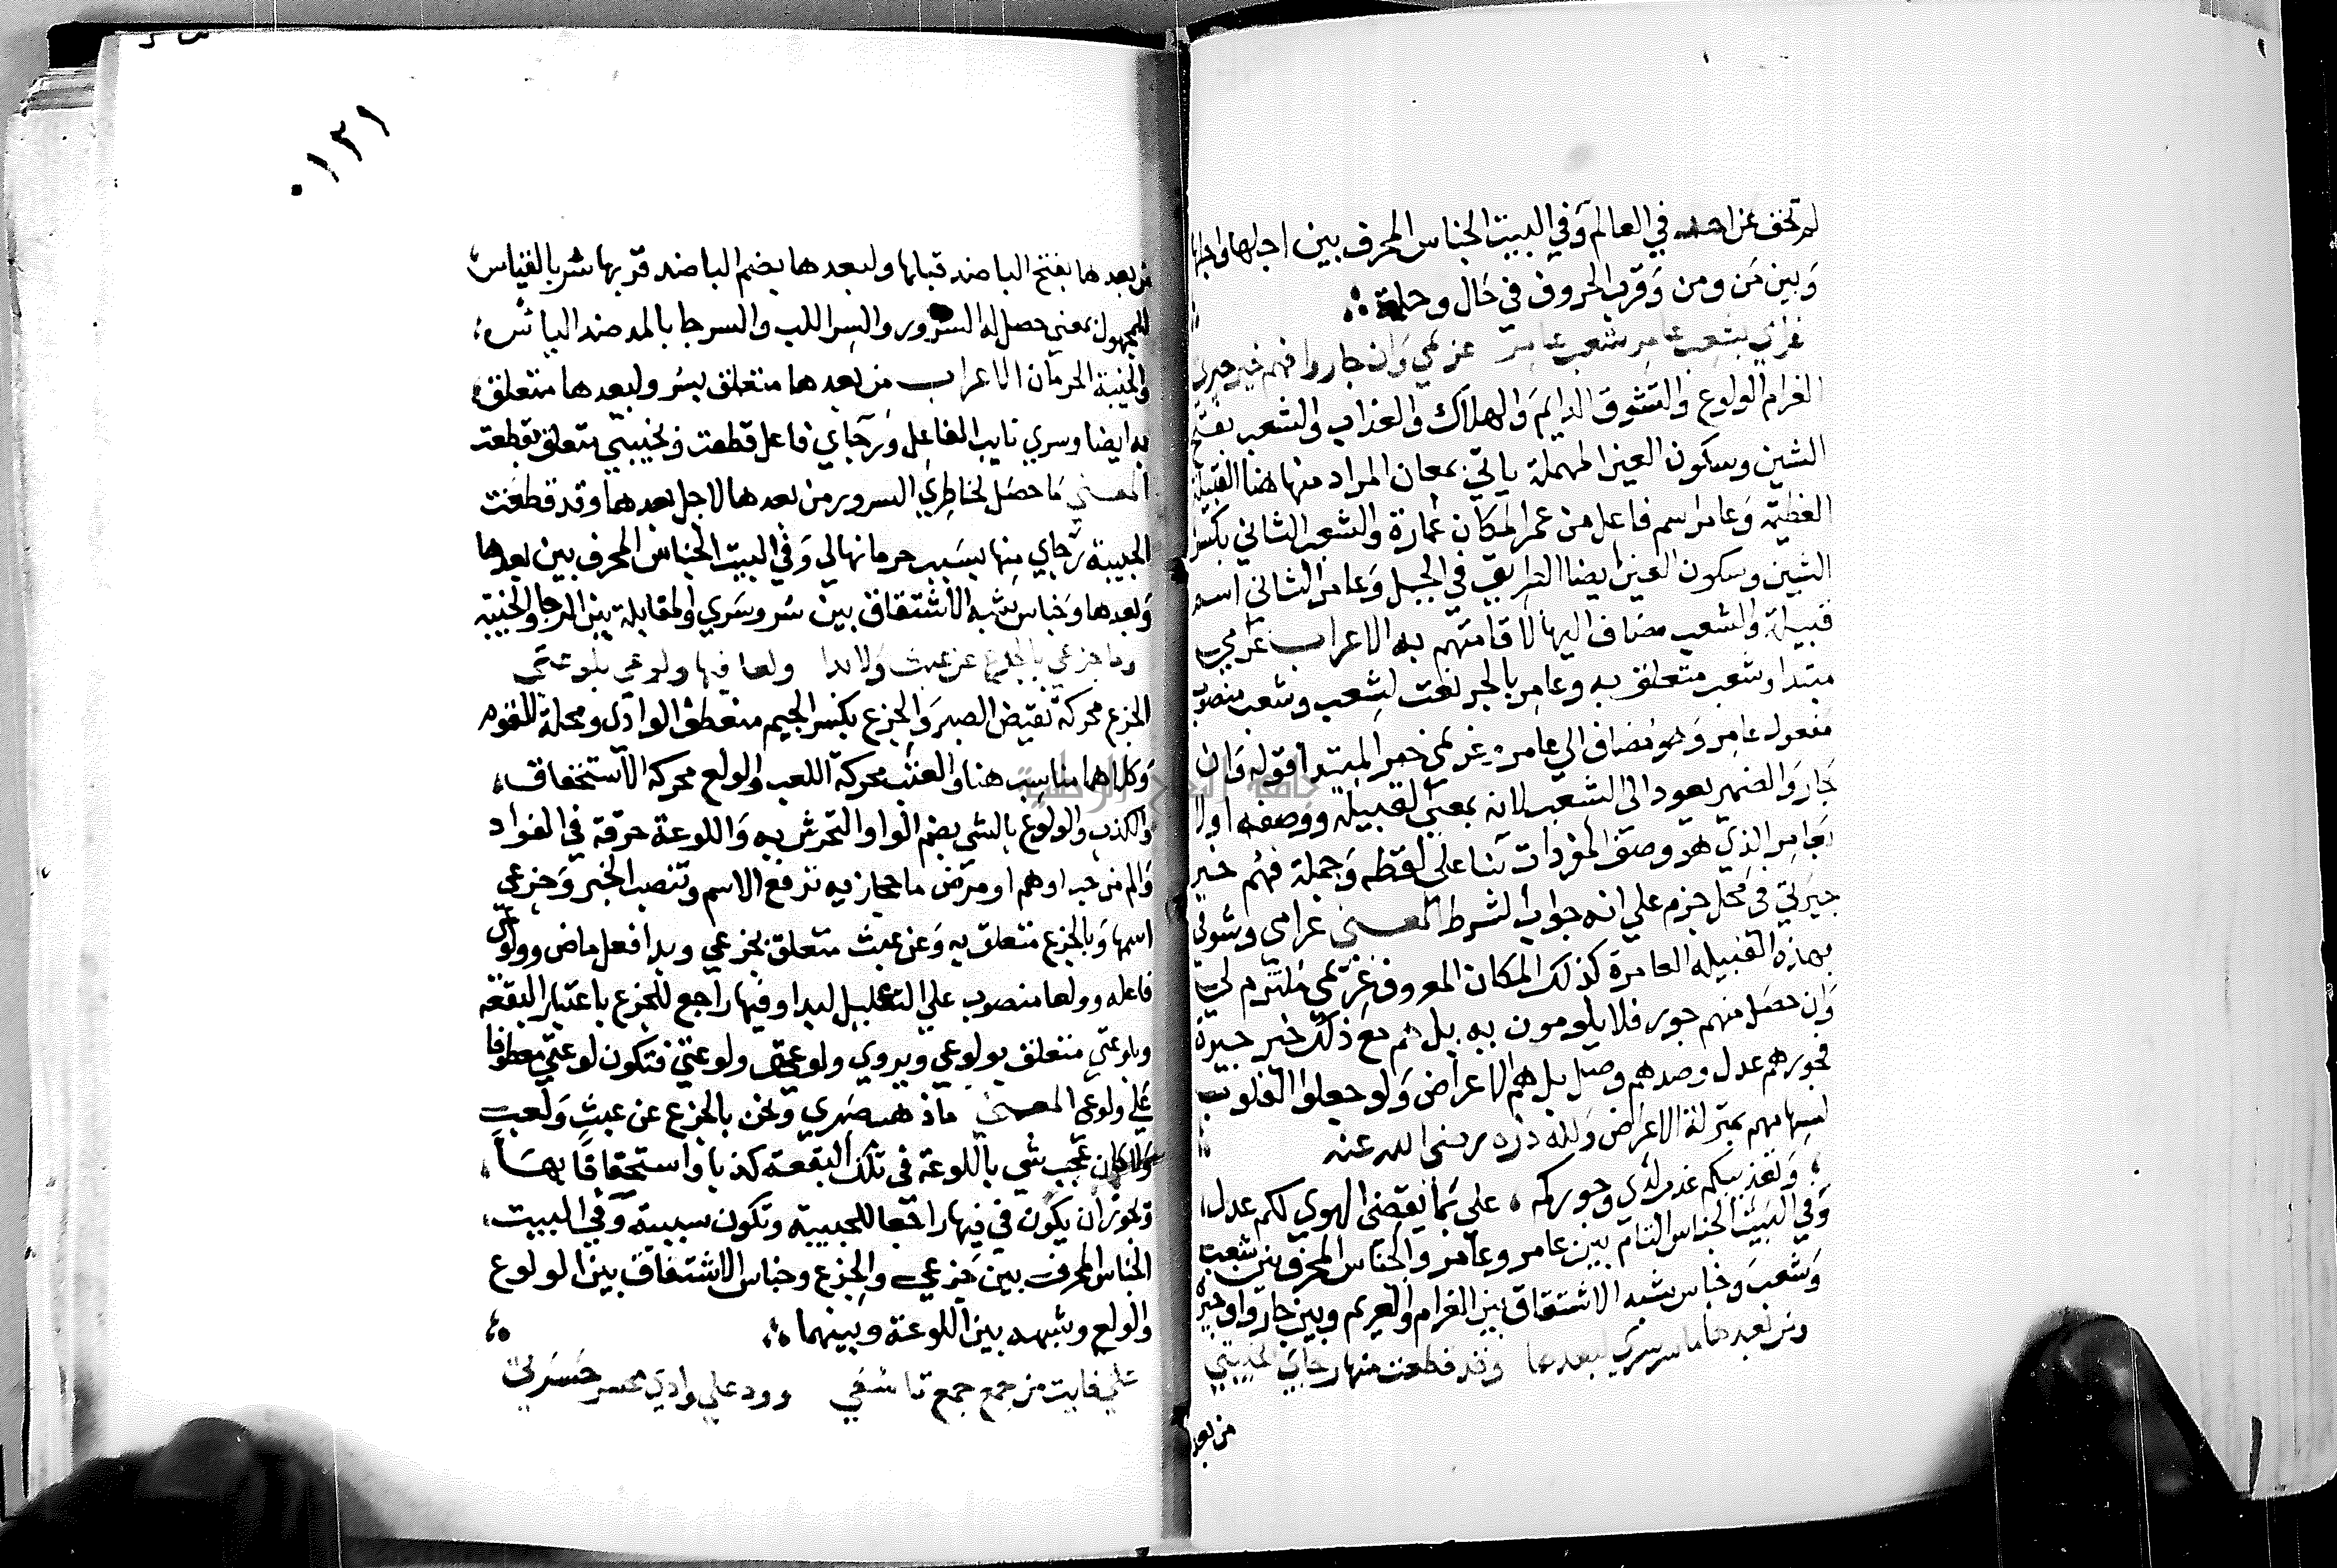 لم تخف عن احد في العالم وفي البيت الجناس المحرف بين اجلها واجلها
وبين من ومن وقرب الحروف في حال وحلة
غرامي بشعب عامر شعب عامر غريمي وان جاروا فهم خير جيرتي
الغرام الولوع والتشوق الدايم والهلاك والعذاب والشعب بفتح
الشين وسكون العين المهملة ياتي بمعان المراد منها هنا القبيلة
العظيمة وعامر اسم فاعل من عمر المكان عمارة والشعب الثاني بكسر
الشين وسكون العين ايضا الطريق في الجبل وعامر الثاني اسم
قبيلة والشعب مضاف اليها لاقامتهم به الاعراب غرامي
مبتدا وشعب متعلق به وعامر بالجر نعت لشعب وشعب منصوب
مفعول عامر وهو مضاف الي عامر غريمي خبر المبتدا قوله وان
جار والضمير يعود الى الشعب لانه بمعني القبيلة ووصفه اولا
بعامر الذي هو وصف المفردات بنا علي لفظه وجملة فهم خير
جيرتي في محل جزم علي انه جواب الشرط المعنى غرامي وشوقي
بهذه القبيلة العامرة كذلك المكان المعروف غريمي ملتزم لي
وان حصل منهم جور فلا يلومون به بل هم مع ذلك خير جيرة
فجورهم عدل وصدهم وصل بل هم الاعراض ولو جعلوا القلوب
لسهامهم بمنزلة الاغراض ولله دره رضى الله عنه
وتعذيبكم عذب لدي وجوركم علي بما يقضى الهوي لكم عدل
وفي البيت الجناس التام بين عامر وعامر والجناس المحرف بين شعب
وشعب وجناس شبه الاشتقاق بين الغرام والغريم وبين جاروا وجيرة
ومن بعدها ما سر سري لبعدها وقد قطعت منها رجاي بخيبتي
من بعد
١٣١
من بعدها بفتح البا ضد قبلها ولبعدها بضم البا ضد قربها سر بالقياس
للمجهول بمعني حصل له السرور والسر اللب والسر جا بالمد ضد الياس
والخيبة الحرمان الاعراب من بعدها متعلق بسر ولبعدها متعلق
به ايضا وسري نايب الفاعل ورجاي فاعل قطعت وبخيبتي متعلق بقطعت
المعنى ما حصل لخاطري السرور من بعدها لاجل بعدها وقد قطعت
الحبيبة رجاي منها بسبب حرمانها لي وفي البيت الجناس المحرف بين بعدها
وبعدها وجناس شبه الاشتقاق بين سر وسري والمقابلة بين الرجا والخيبة
وما جزعي بالجزع عن عبث ولا بدا ولعا فيها ولوعي بلوعتي
الجزع محركة نقيض الصبر والجزع بكسر الجيم منعطف الوادي ومحلة للقوم
وكلاهما مناسب هنا والعبث محركة اللعب والولع محركة الاستخفاف
والكذب والولوع بالشي بضم الواو التحرش به واللوعة حرقة في الفواد
والم من حب او هم او مرض ما حجازيه ترفع الاسم وتنصب الخبر وجزعي
اسمها وبالجزع متعلق به وعن عبث متعلق بجزعي وبدا فعل ماض وولوعي
فاعله وولعا منصوب علي التعليل لبدا وفيها راجع للجزع باعتبار البقعة
وبلوعتي متعلق بولوعي ويروي ولوعتي ولوعتي فتكون لوعتي معطوفا
علي ولوعي المعنى ماذهب صبري ونحن بالجزع عن عبث ولعب
ولا كان عجب شي باللوعة في تلك البقعة كذبا واستحقاقا بها
ويجوز ان يكون في فيها راجعا للحبيبة وتكون سببية وفي البيت
الجناس المحرف بين جزعي والجزع وجناس الاشتقاق بين الولوع
والولع وشبهه بين اللوعة وبينهما
علي فايت من جمع جمع تاسفي وود علي وادي محسر حسرتي